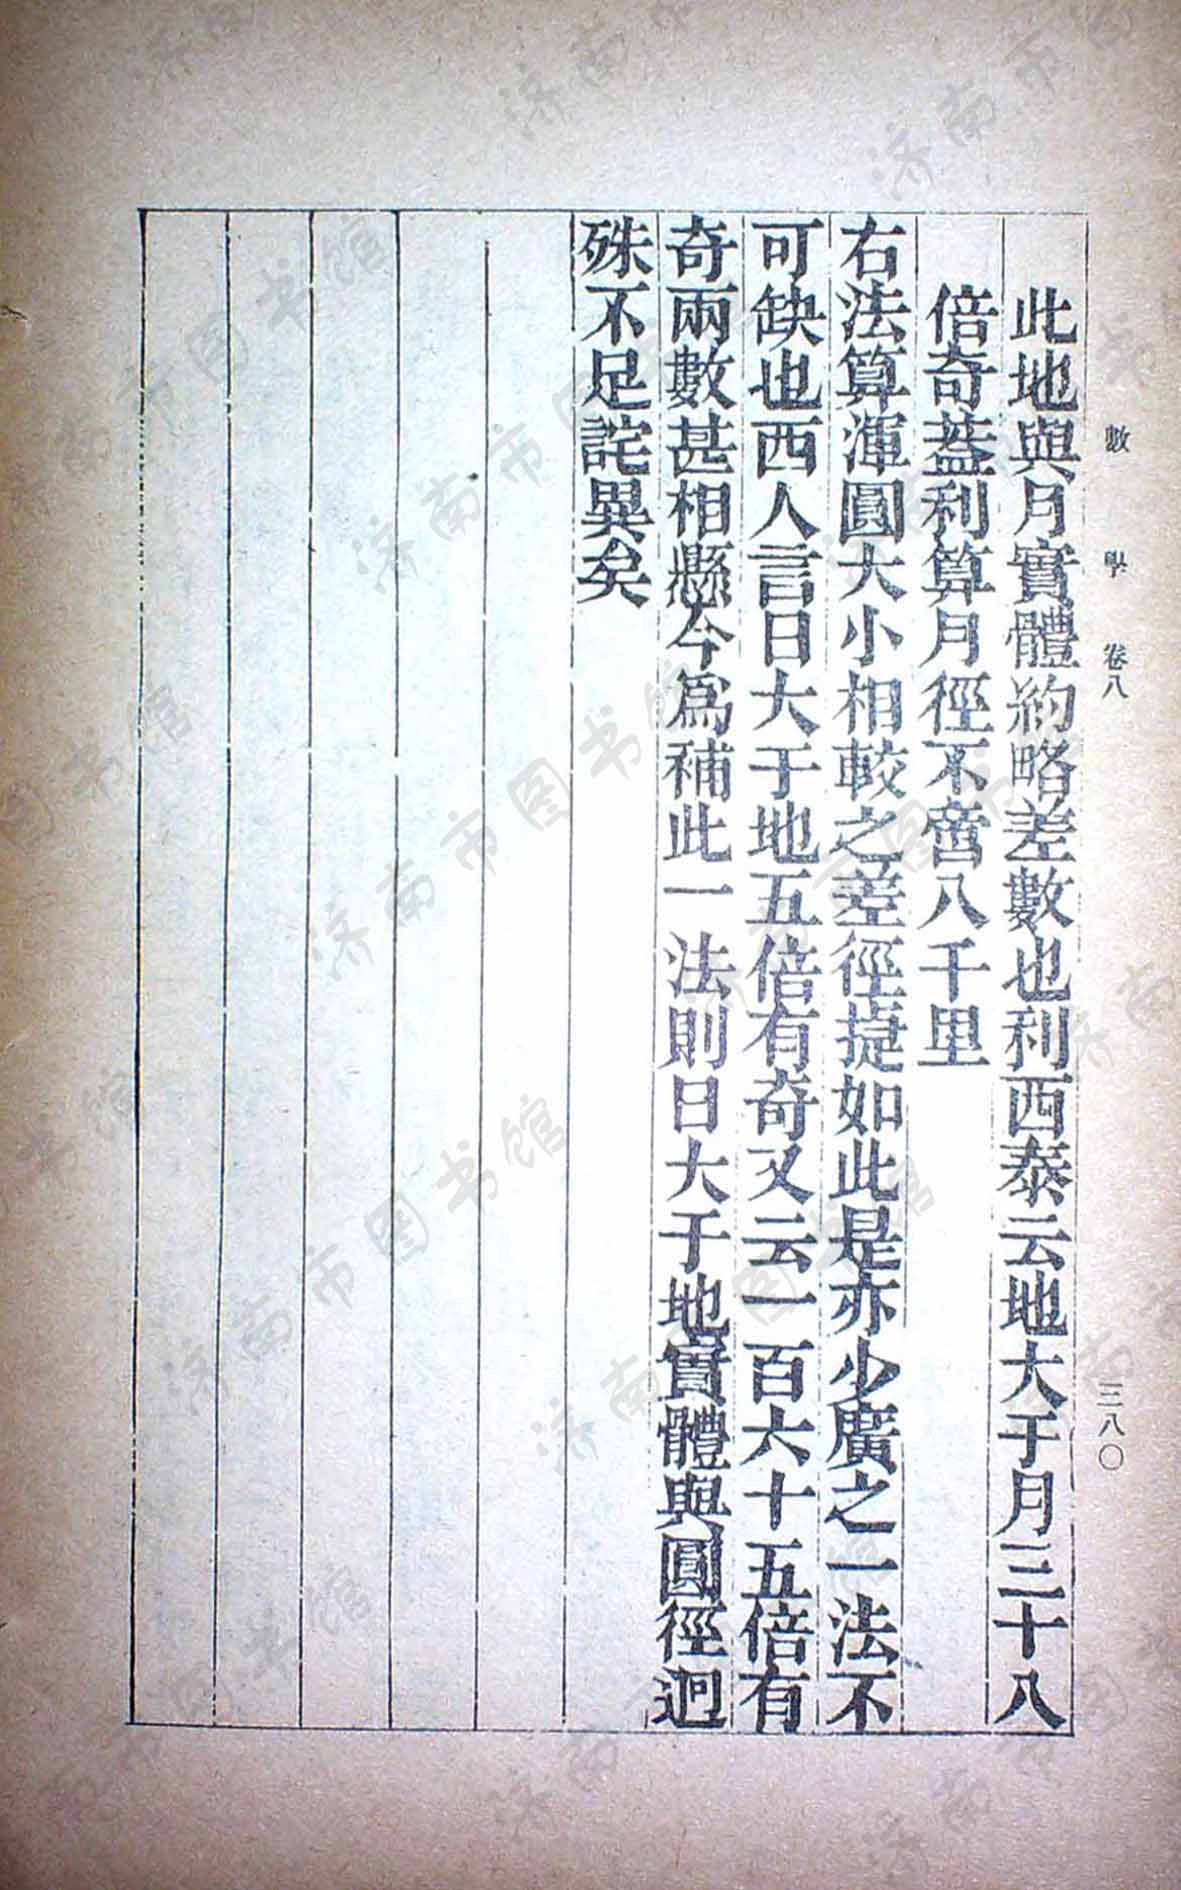 數學 卷八 三八〇
此地與月實體約略差數也利西泰云地大于月三十八
倍奇蓋利算月徑不啻八千里
右法算渾圓大小相較之差徑捷如此是亦少廣之一法不
可缺也西人言日大于地五倍有奇又云一百六十五倍有
奇兩數甚相懸今爲補此一法則日大于地實體與圓徑迥
殊不足詫異矣
济南市图书馆